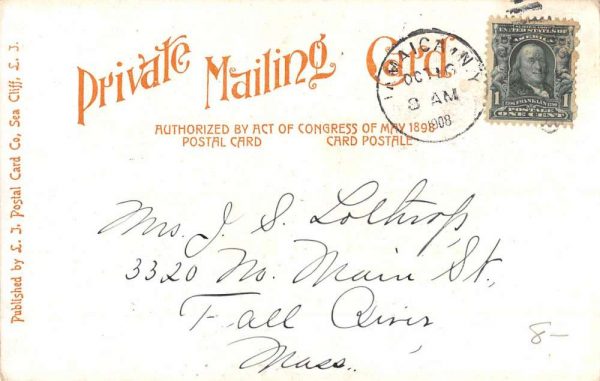 Private Mailing Card.
AUTHORIZED BY ACT OF CONGRESS OF MAY 1898
POSTAL CARD CARD POSTALE
JAMAICA, N.Y.
OCT 16
8 AM
1908
UNITED STATES OF
AMERICA
1 1
POSTAGE
ONE CENT
Mrs. J. S. Lothrop,
3320 No. Main St,
Fall River,
Mass.
8-
Published by L. I. Postal Card Co, Sea Cliff, L. I.